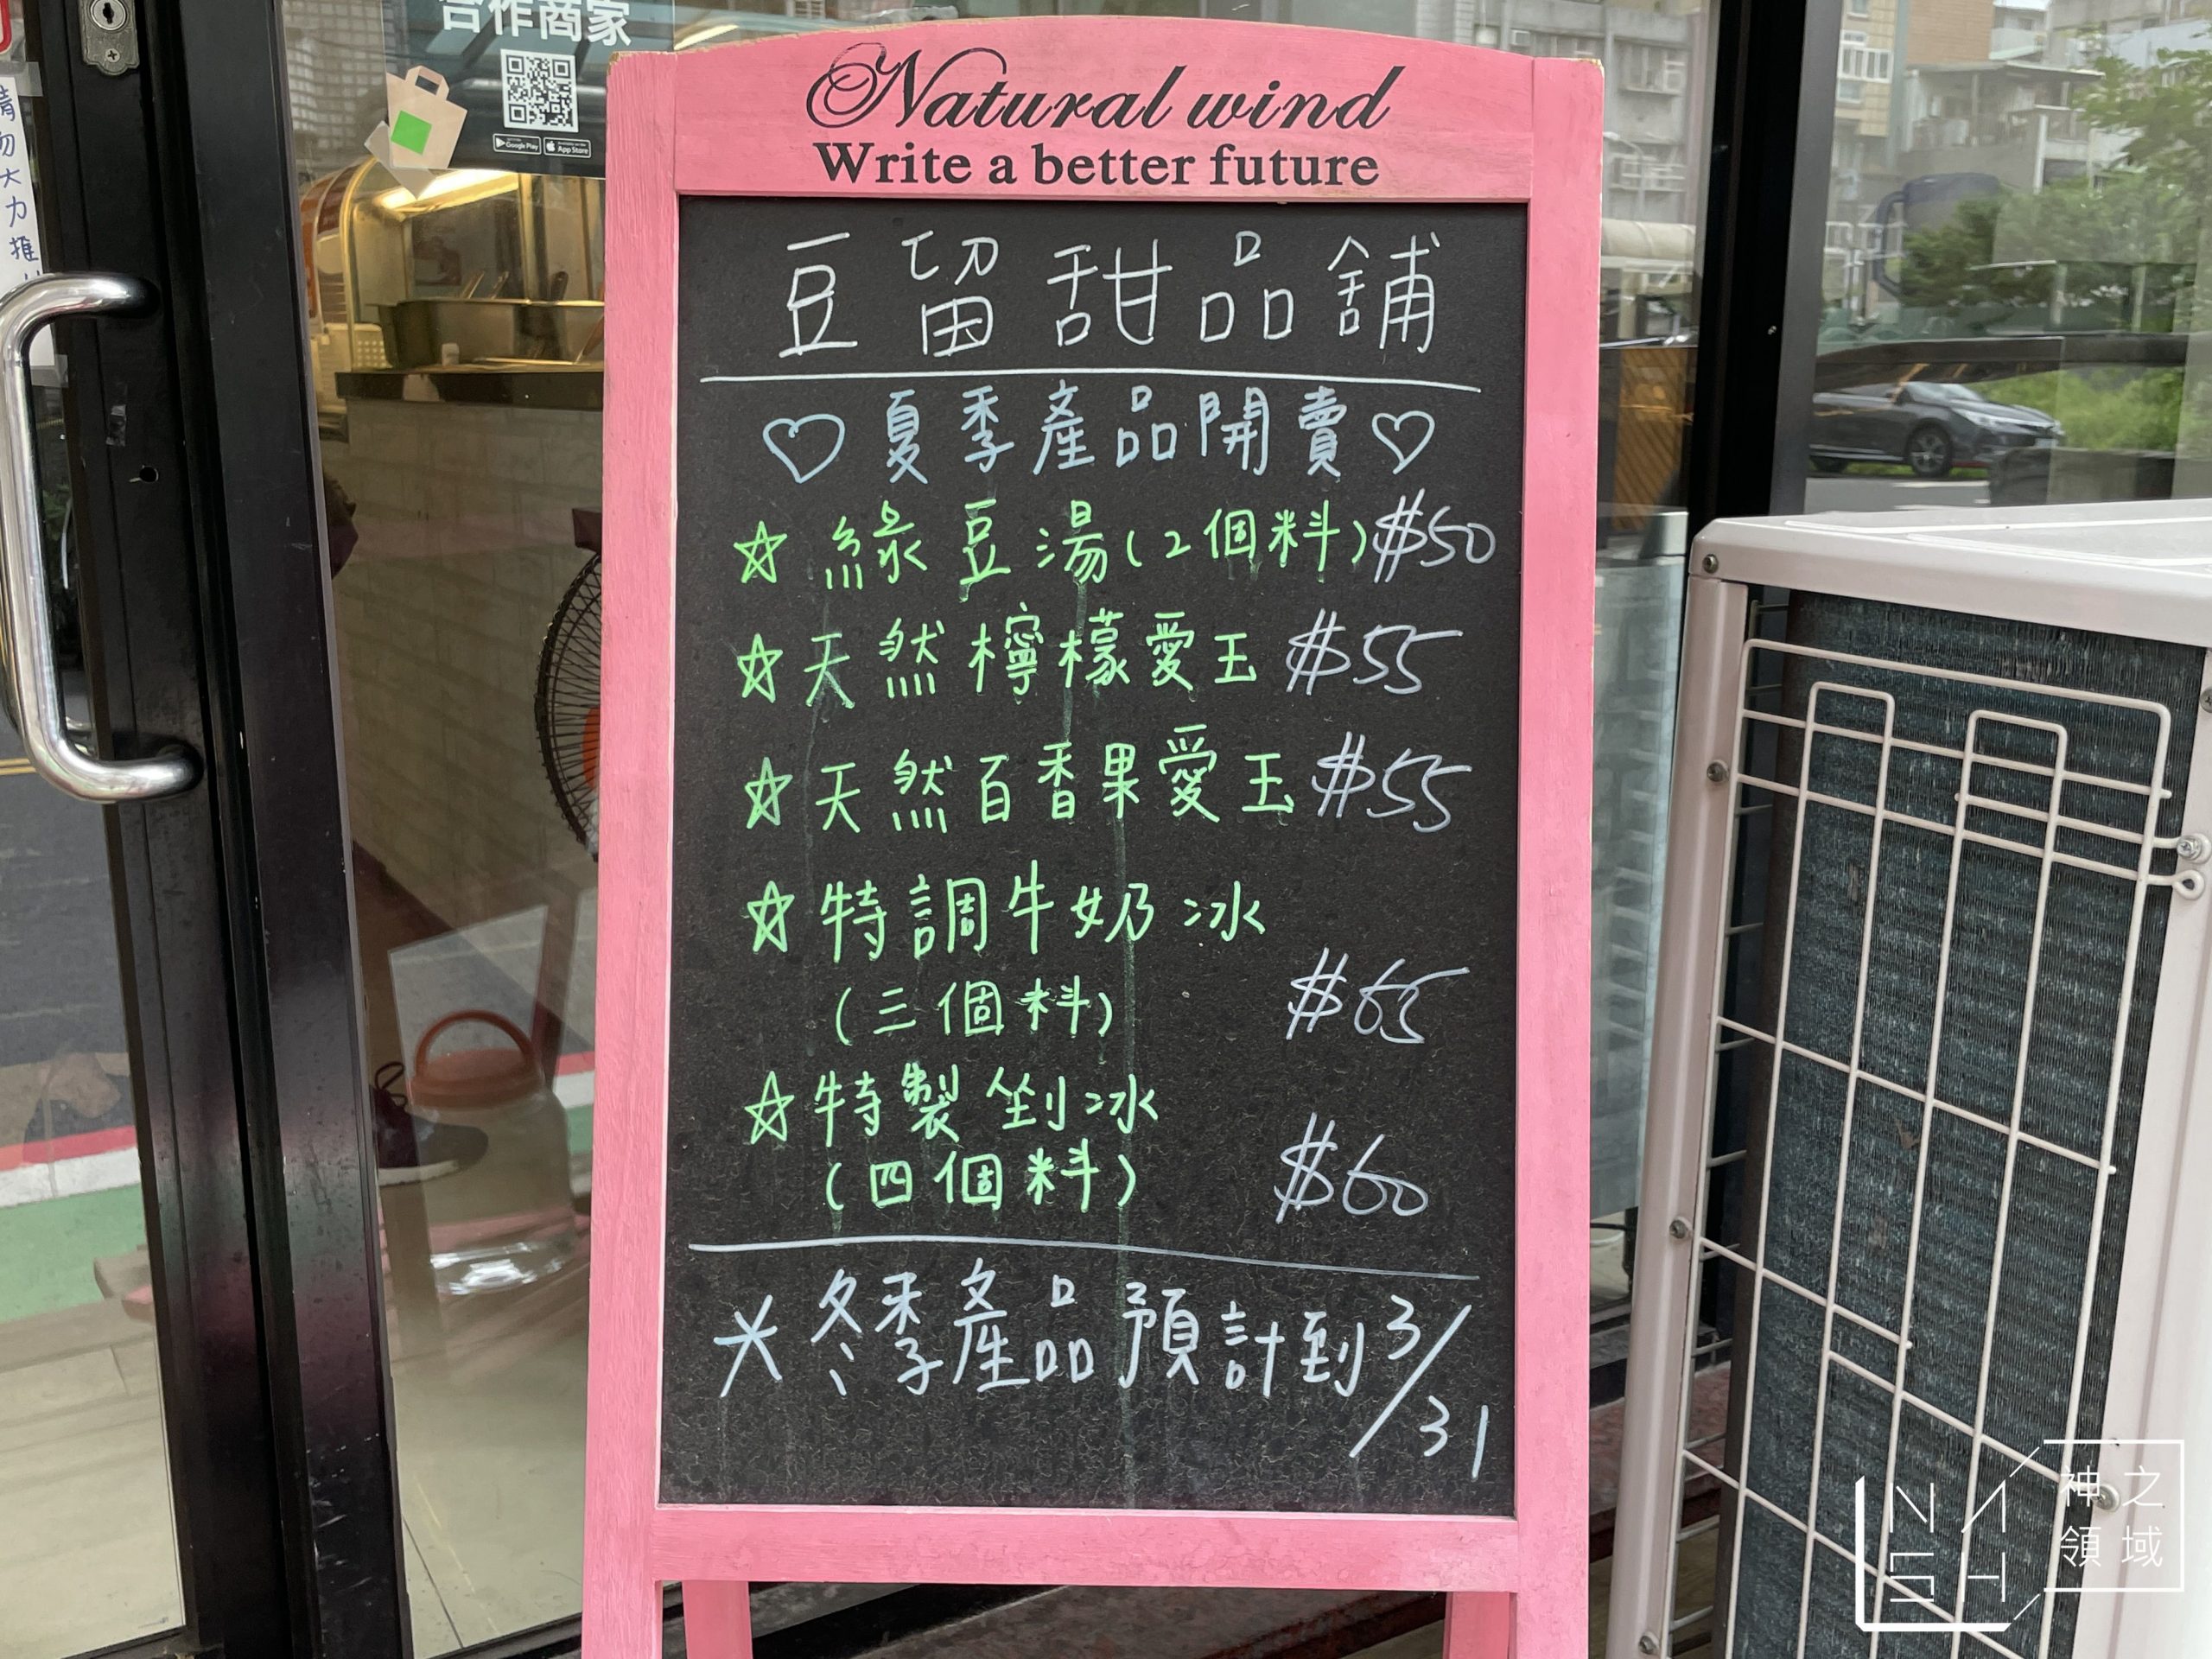 合作商家
Google Play
App Store
請勿大力推
Natural wind
Write a better future
豆留甜品舖
♡夏季產品開賣♡
☆綠豆湯(2個料)$50
☆天然檸檬愛玉 $55
☆天然百香果愛玉 $55
☆特調牛奶冰
(三個料) $65
☆特製剉冰
(四個料) $60
*冬季產品預計到3/31
NASH
神之
領域